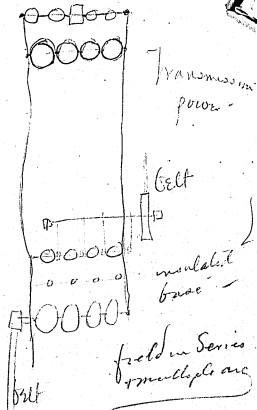 Transmission
power -
belt
insulated
base -
field in Series
& multiple arc
belt